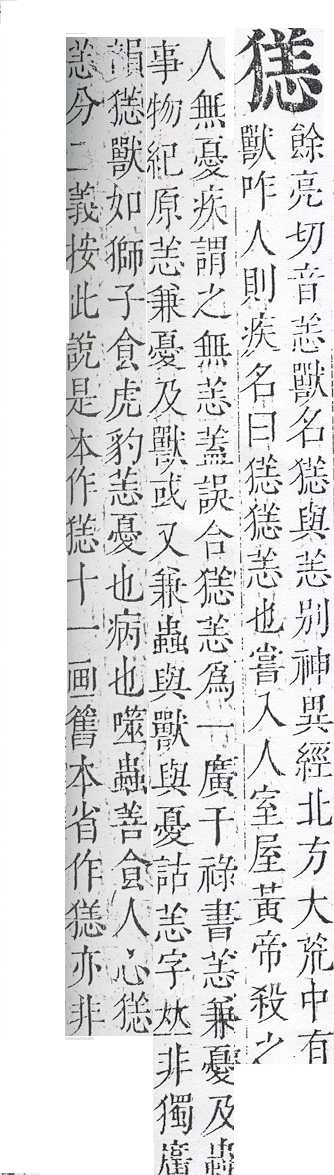 㺊
餘亮切音恙獸名㺊與恙別神異經北方大荒中有
獸咋人則疾名曰㺊㺊恙也嘗入人室屋黃帝殺之
人無憂疾謂之無恙蓋誤合㺊恙爲一廣干祿書恙兼憂及蟲
事物紀原恙兼憂及獸或又兼蟲與獸與憂詁恙字𠀤非獨廣
韻㺊獸如獅子食虎豹恙憂也病也噬蟲善食人心㺊
恙分二義按此說是本作㺊十一画舊本省作㺊亦非